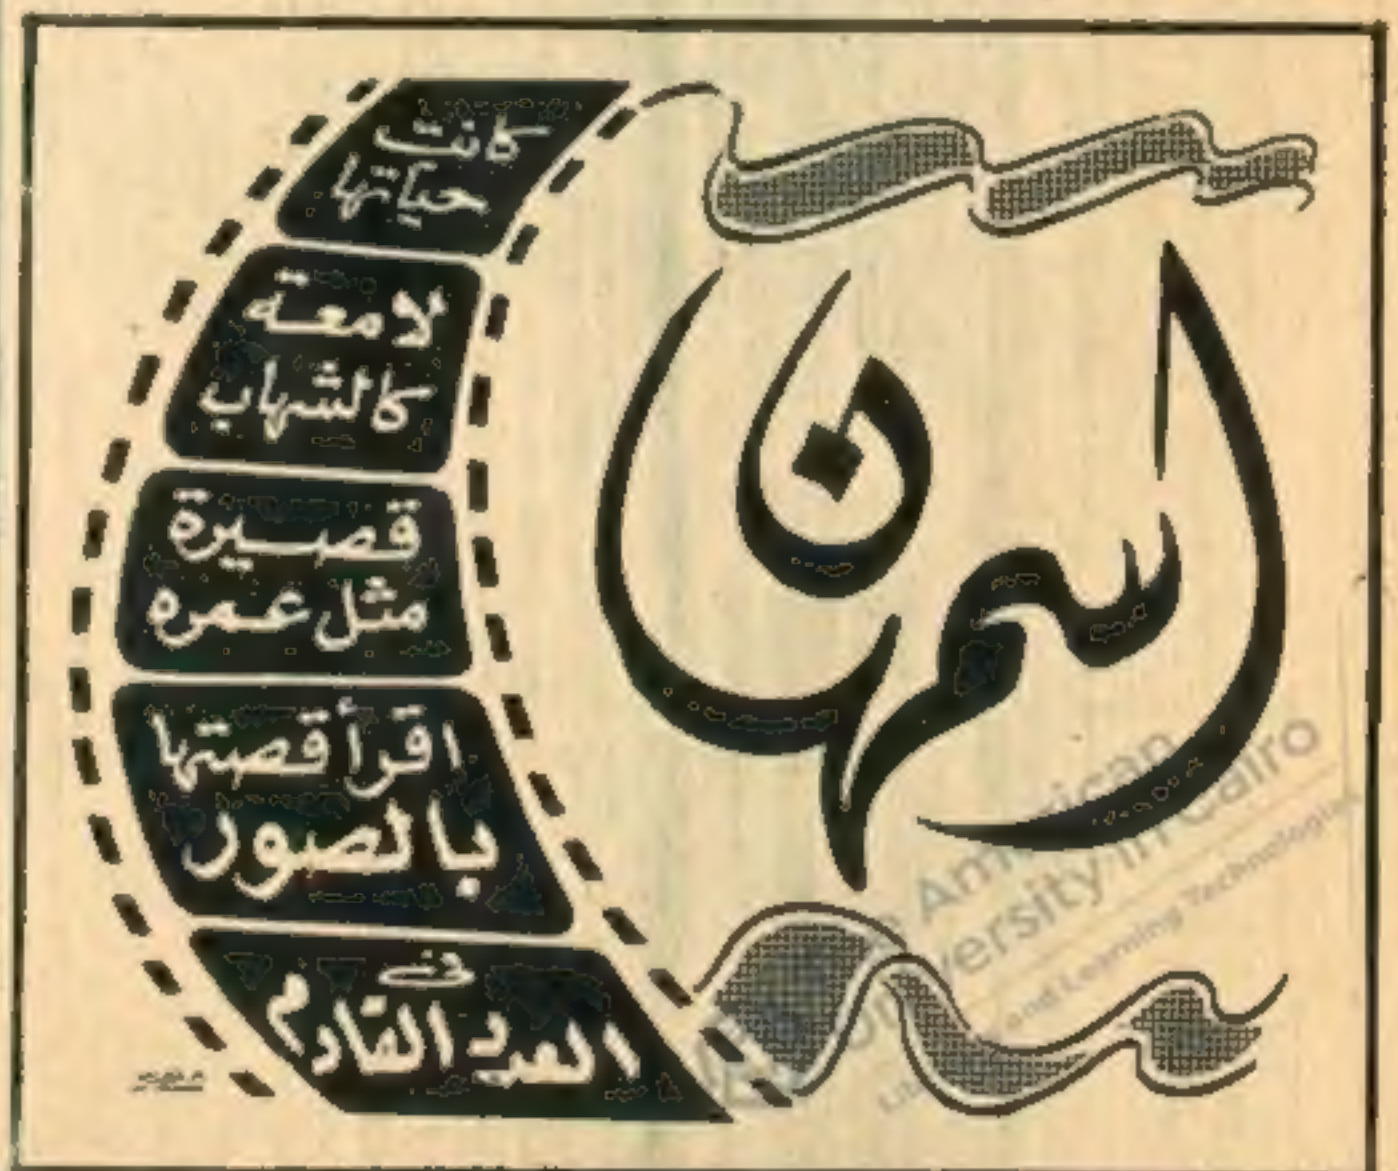 اسمهان
كانت
حياتها
لامعة
كالشهاب
قصيرة
مثل عمره
اقرأ قصتها
بالصور
في
العدد القادم
American
University in Cairo
and Learning Technologies